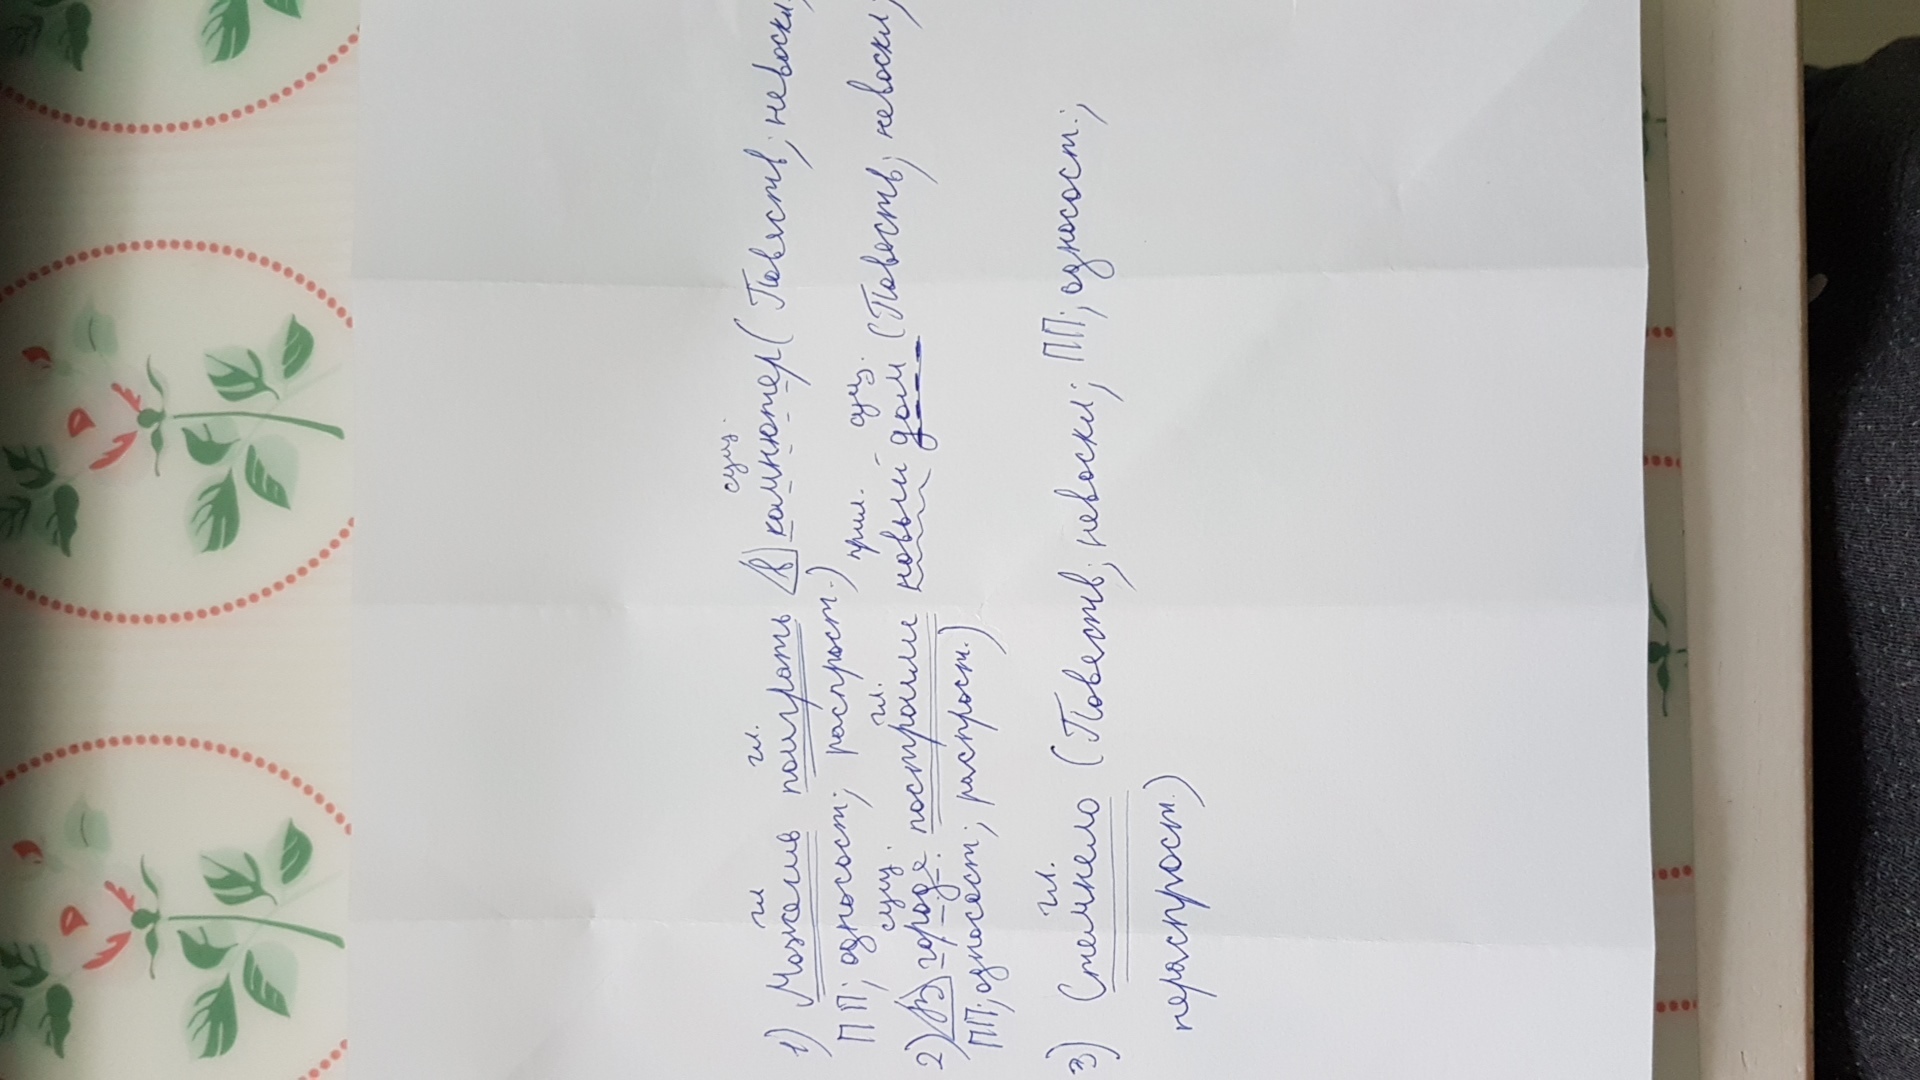 сущ.
гл гл.
1) Можешь поиграть в компютер (Повеств; невоскл;
ПП; односост; распрост.)
сущ. гл. прил. сущ.
2) В городе построили новый дом (Повеств; невоскл;
ПП; односост; распрост.)
гл.
3) Стемнело (Повеств; невоскл; ПП; односост.;
нераспрост.)